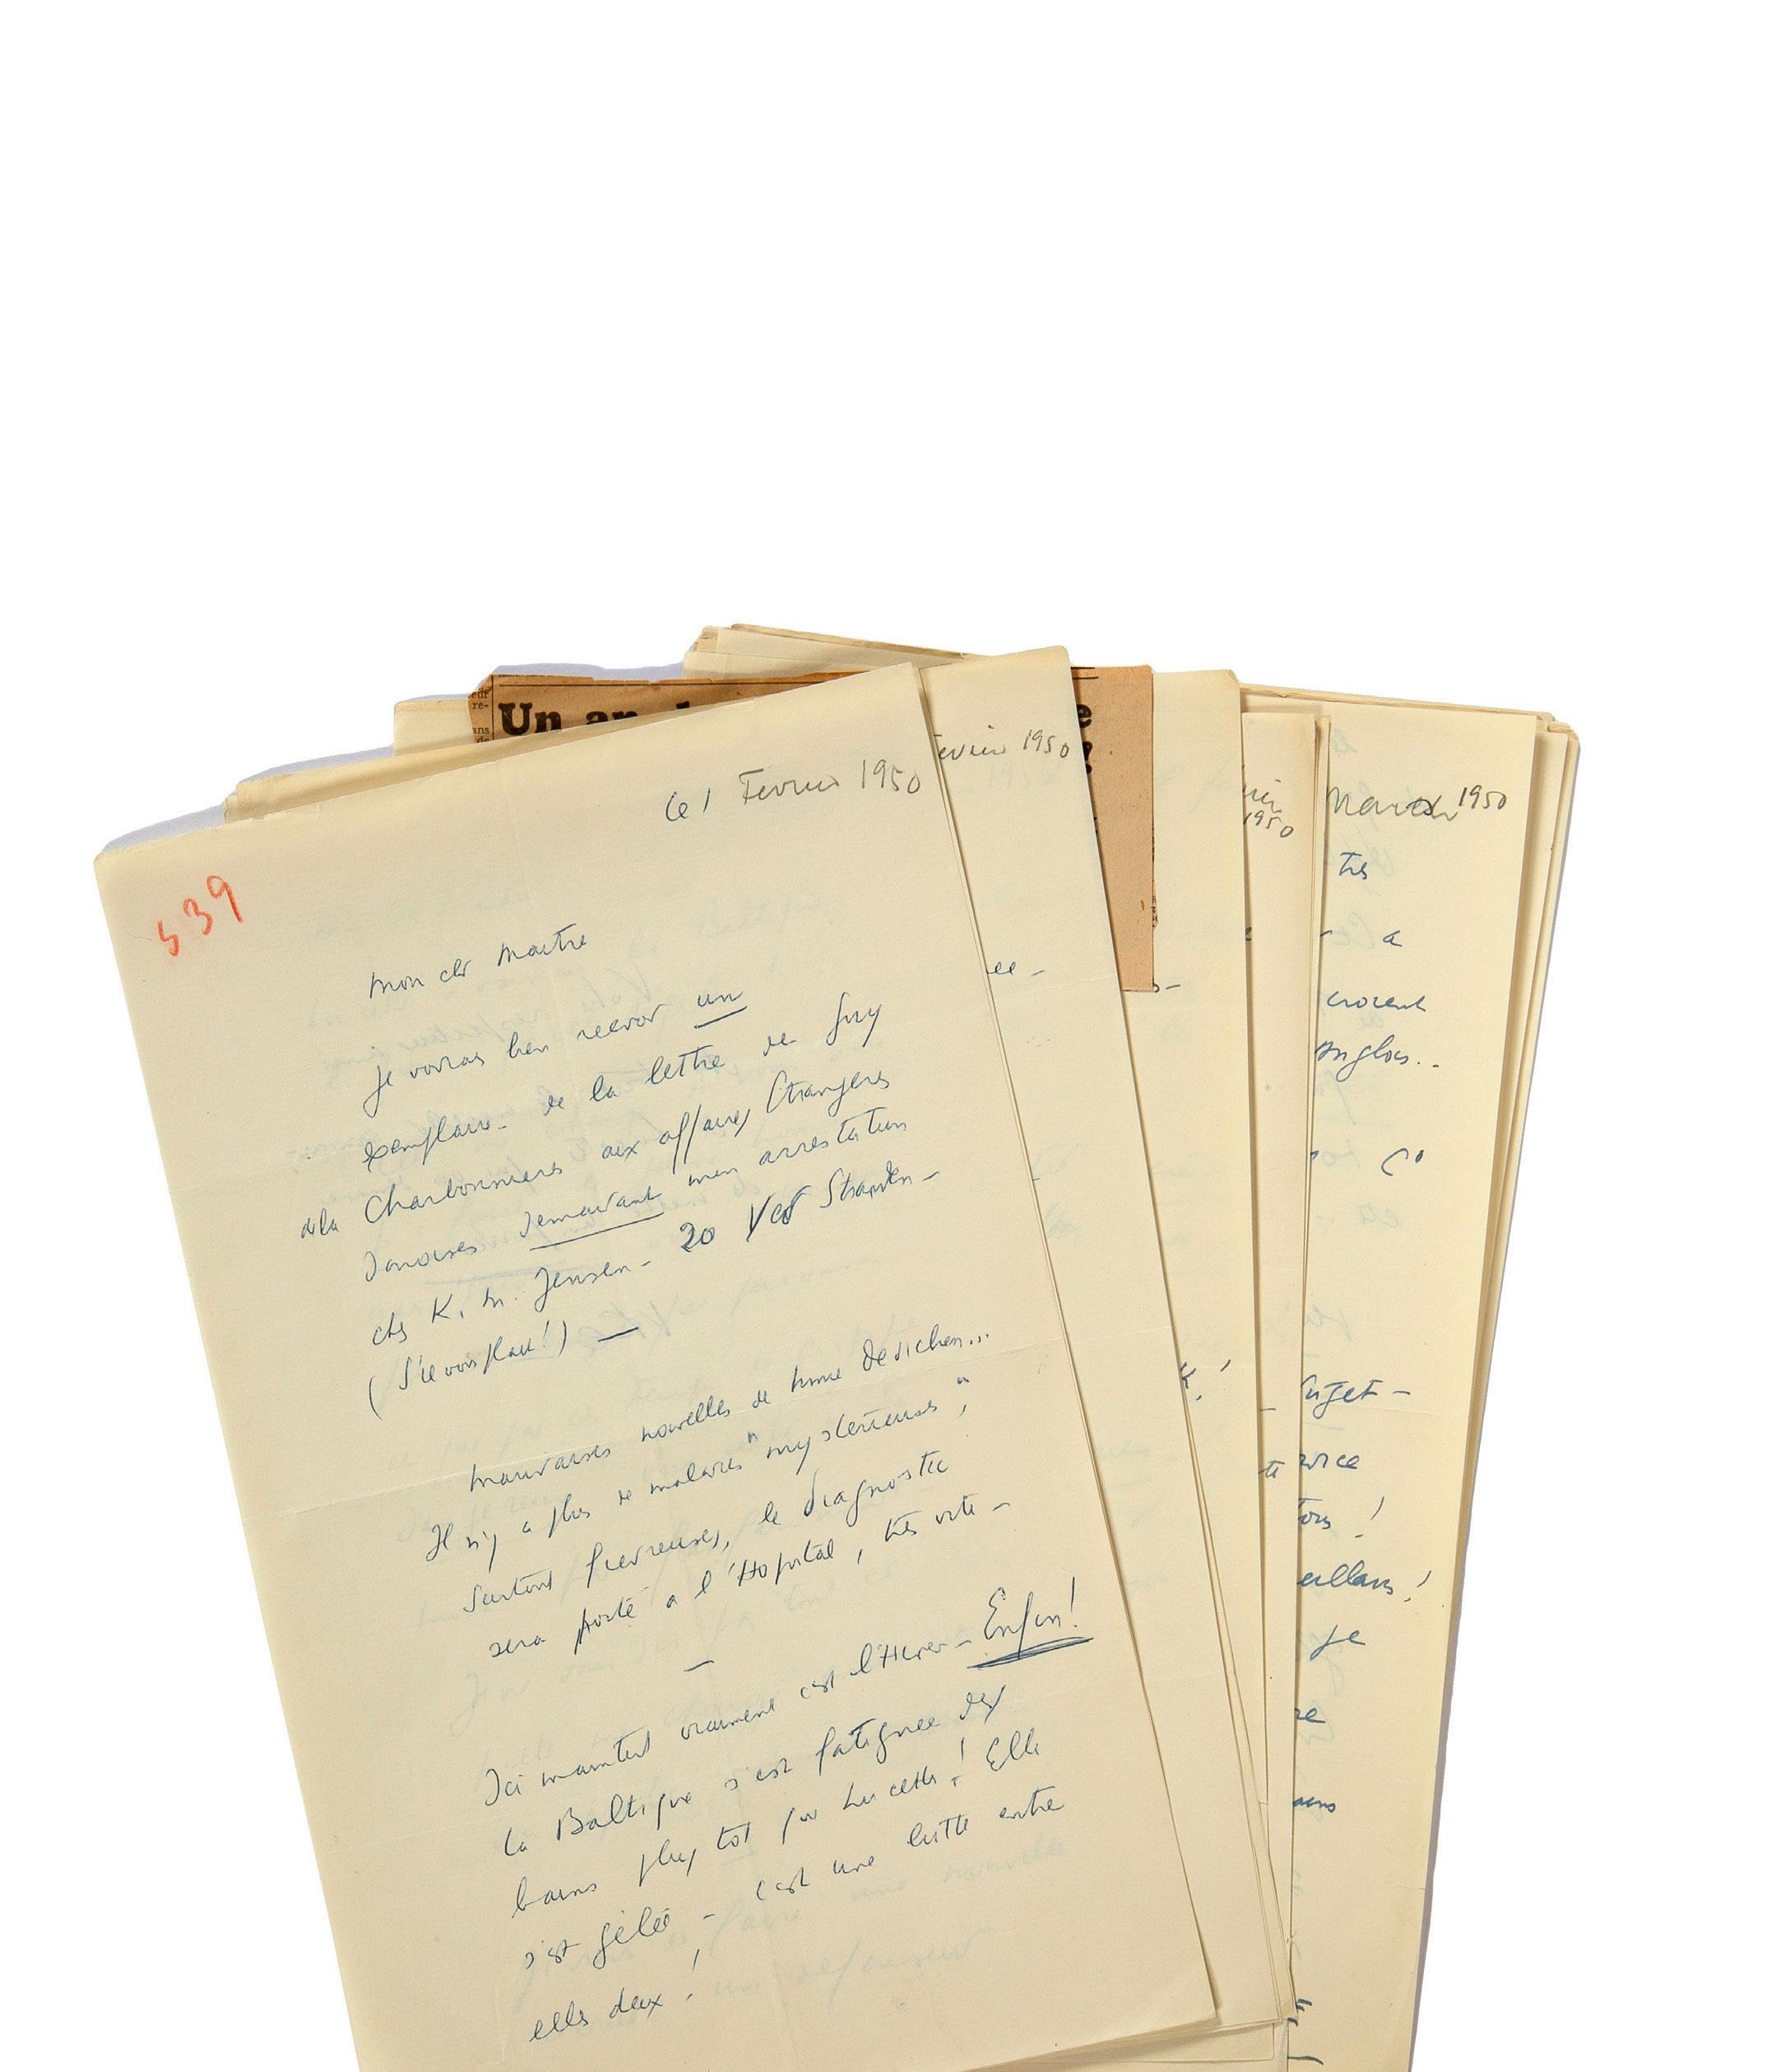 Un
e
eur
re-
ans
de
Le 1 Fevrier 1950
evrier 1950
1950
Mars 1950
539
Mon cher Maitre
Je voudrais bien recevoir un
exemplaire de la lettre de Guy
de la Charbonnieres aux affaires Etrangeres
Danoises demandant mon arrestation
chez K. M. Jensen - 20 Ved Stranden -
(S'il vous plait !) —
Mauvaises nouvelles de Mme Dedichen...
Il n'y a plus de maladies "mysterieuses",
surtout fievreuses, le diagnostic
sera porté a l'Hopital, très vite -
—
Ici maintent vraiment c'est l'Hiver - Enfin !
la Baltique s'est fatiguée des
bains plus tot pour Lucette ! Elle
s'est gelée - C'est une lutte entre
elles deux !
ee -
très
a
croient
Anglais..
C°
ca -
sujet -
tous !
je
te